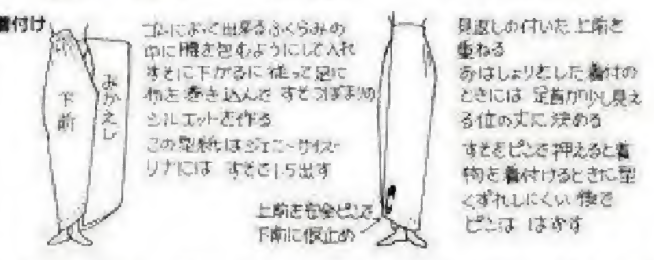 着付け
ゴムによって出来るふくらみの
中に腰を包むようにして入れ
すそに下がるに従って足に
布を巻き込んで すそつぼまりの
シルエットを作る
この型紙はジェニーサイズ・
リナには すそを1.5出す
下前
みかえし
上前を安全ピンで
下前に仮止め
見返しの付いた上前を
重ねる
おはしょりをした着付の
ときには 足首が少し見え
る位の丈に決める
すそをピンで押えると着
物を着付けるときに型
くずれしにくい 後で
ピンは はずす